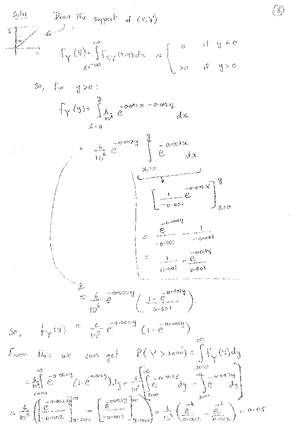 Soln: Draw the support of (X,Y)
③
f_Y(y) = ∫_{x=-∞}^{∞} f_{X,Y}(x,y) dx = { 0 if y ≤ 0
>0 if y > 0
So, for y > 0:
f_Y(y) = ∫_{x=0}^{y} 6/10^6 e^{-0.001x - 0.002y} dx
= 6/10^6 e^{-0.002y} ∫_{x=0}^{y} e^{-0.001x} dx
[ 1/-0.001 e^{-0.001x} ]_{x=0}^{y}
= e^{-0.001y}/-0.001 - 1/-0.001
= 1/0.001 - e^{-0.001y}/0.001
= 6/10^6 e^{-0.002y} ( 1-e^{-0.001y} / 0.001 )
So, f_Y(y) = 6/10^3 e^{-0.002y} (1-e^{-0.001y})
From this we can get P(Y > 2000) = ∫_{2000}^{∞} f_Y(y) dy
= 6/10^3 ∫_{2000}^{∞} e^{-0.002y} (1-e^{-0.001y}) dy = 6/10^3 [ ∫_{2000}^{∞} e^{-0.002y} dy - ∫_{2000}^{∞} e^{-0.003y} dy ]
= 6/10^3 ( [ e^{-0.002y}/-0.002 ]_{y=2000}^{∞} - [ e^{-0.003y}/-0.003 ]_{y=2000}^{∞} ) = 6/10^3 ( e^{-4}/0.002 - e^{-6}/0.003 ) = 0.05